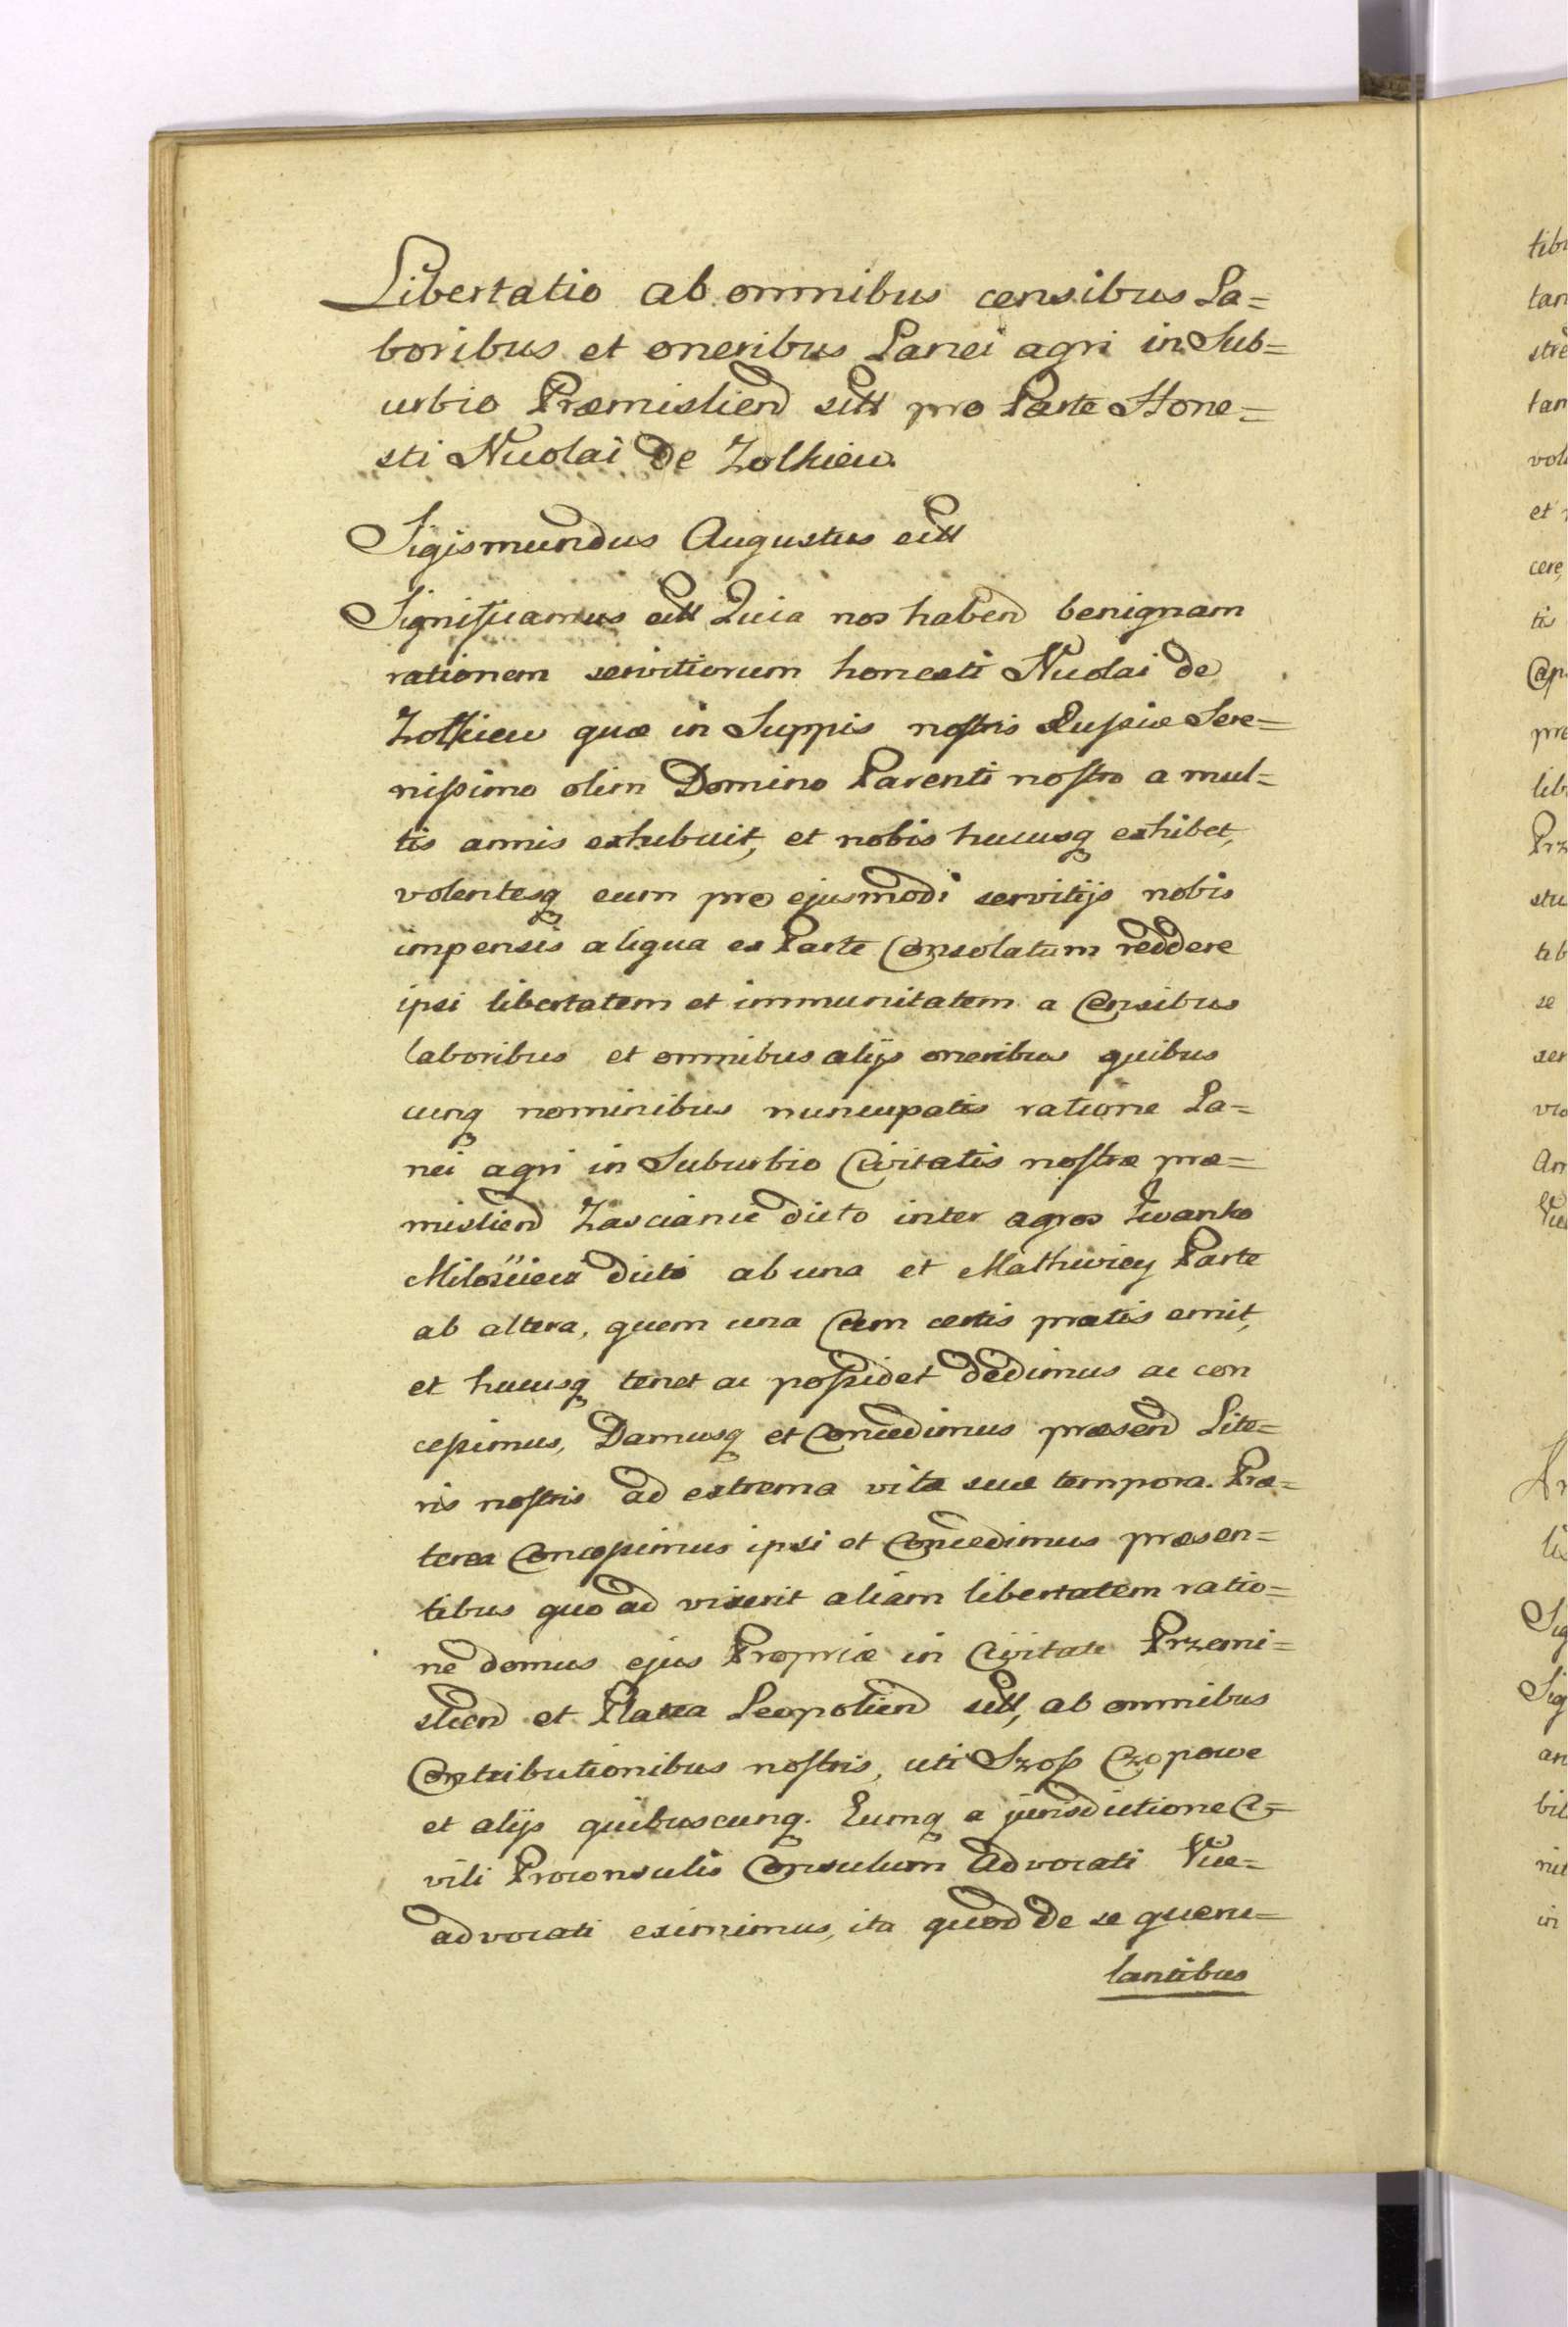 Libertatio ab omnibus censibus La=
boribus et oneribus Lanei agri in Sub=
urbio Præmislien sitt pro Parte Hone=
sti Nicolai de Zolkiew.
Sigismundus Augustus ett
Significamus ett Quia nos haben benignam
rationem servitiorum honesti Nicolai de
Zolkiew quæ in Suppis nostris Russiæ Sere=
nissimo olim Domino Parenti nostro a mul=
tis annis exhibuit, et nobis hucusq exhibet,
volentesq eum pro ejusmodi servitijs nobis
impensis aliqua ex Parte Consolatum reddere
ipsi libertatem et immunitatem a Censibus
laboribus et omnibus alijs oneribus quibus
cunq nominibus nuncupatis ratione La=
nei agri in Suburbio Civitatis nostræ præ=
mislien Zascianie dicto inter agros Iwanko
dicti ab una et Parte
ab altera, quem una Cum certis pratis emit,
et hucusq tenet ac possidet dedimus ac con
cessimus, Damusq et Concedimus præsen Lite=
ris nostris ad extrema vitæ suæ tempora. Præ=
terea Concessimus ipsi et Concedimus præsen=
tibus quo ad vixerit aliam libertatem ratio=
ne domus ejus Propriæ in Civitate Przemi=
slien et Platea Leopolien sitt, ab omnibus
Contributionibus nostris, uti Szoss Czopowe
et alijs quibuscunq. Eumq a jurisdictione Ci=
vili Proconsulis Consulum Advocati Vice=
advocati eximimus, ita quod de se queru=
lantibus
tib
tan
stre
tan
vol
et
cere
tis
Cap
pre
lib
Prz
stu
tib
se
ser
vio
An
Vic
An
lis
Sig
Sig
an
bil
nit
in